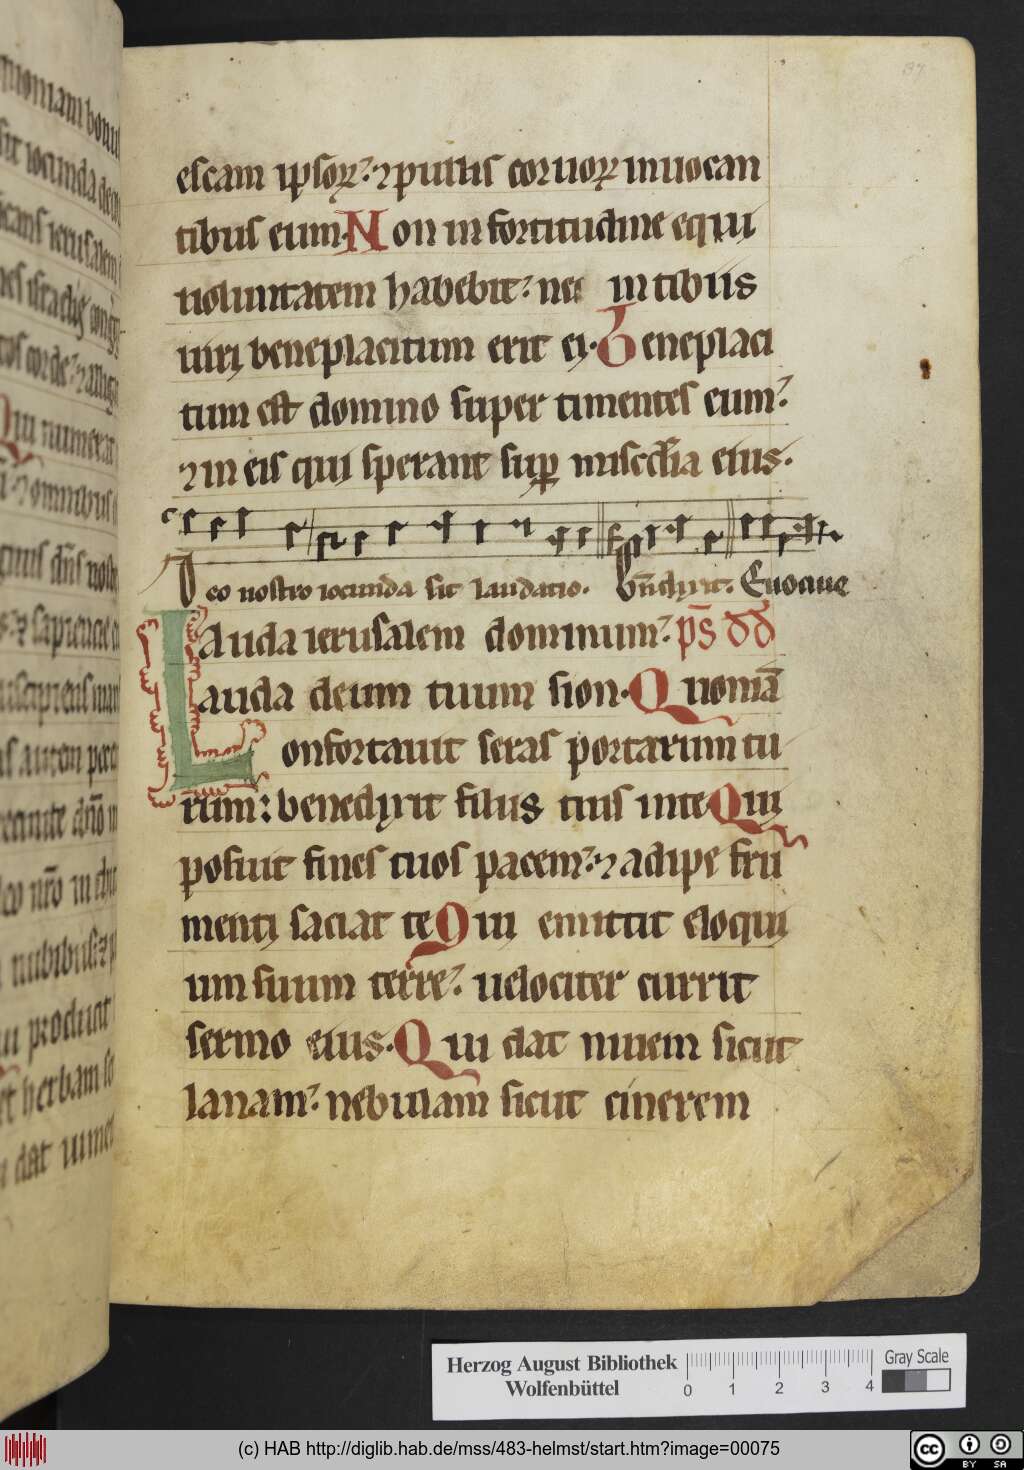 37
escam ipsoꝝ: ⁊ pullis coruoꝝ inuocan
tibus eum· Non in fortitudine equi
uoluntatem habebit: nec in tibiis
uiri beneplacitum erit ei· Beneplaci
tum est domino super timentes eum:
⁊ in eis qui sperant suꝑ misēdia eius·
Deo nostro iocunda sit laudatio· Bn̄dixit. Euouae
Lauda ierusalem dominum: ps̄ dd
Lauda deum tuum sion· Quoniā
onfortauit seras portarum tu
rum: benedixit filiis tuis in te Qui
posuit fines tuos pacem: ⁊ adipe fru
menti saciat te Qui emittit eloqui
um suum terre: uelociter currit
sermo eius· Qui dat niuem sicut
lanam: nebulam sicut cinerem
Herzog August Bibliothek
Wolfenbüttel
0 1 2 3 4
Gray Scale
(c) HAB http://diglib.hab.de/mss/483-helmst/start.htm?image=00075
cc BY SA